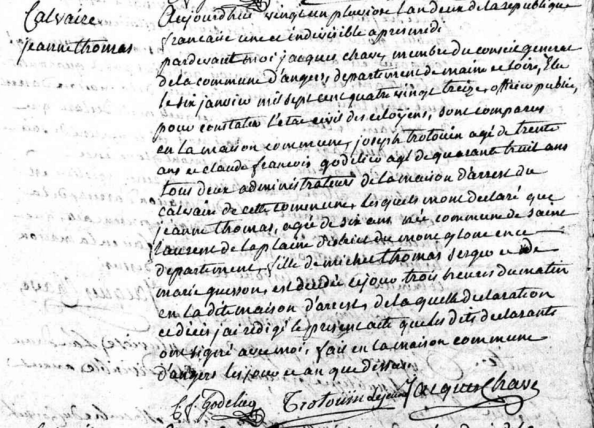 Calvaire
jeanne thomas
Aujourdhui vingt un pluviose l'an deux de la republique
francaise une et indivisible apres midi
pardevant moi jacques chave membre du conseil general
de la commune d'angers departement de maine et loir, Elu
le six janvier mil sept cent quatre vingt treize, officier public,
pour constater l'etat civil des citoyens, sont comparus
en la maison commune, joseph trotouin agé de trente
ans et claude francois godelier agé de quarante huit ans
tous deux administrateurs de la maison d'arrest du
calvaire de cette commune, lesquels m'ont declaré que
jeanne thomas, agée de six ans née commune de saint
laurent de la plaine district du mont glone en ce
departement, fille de michel thomas serger et de
marie quesson, est decedée ce jour trois heures du matin
en la dite maison d'arrest, de laquelle declaration
et décès j'ai redigé le present acte que les dits declarants
ont signé avec moi, fait en la maison commune
d'angers les jour et an que dessus
C. f. Godelier Trotouin le jeune Jacques Chave